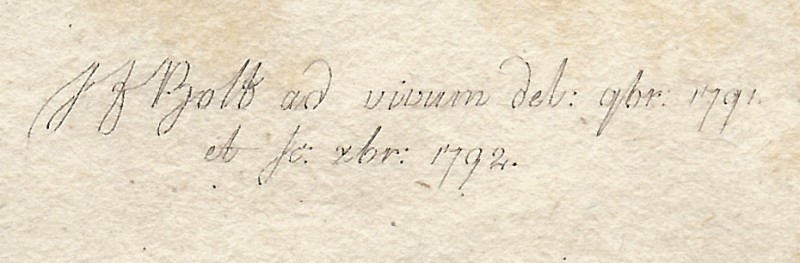 J F Bolt ad vivum del: 9br: 1791.
et sc: xbr: 1792.